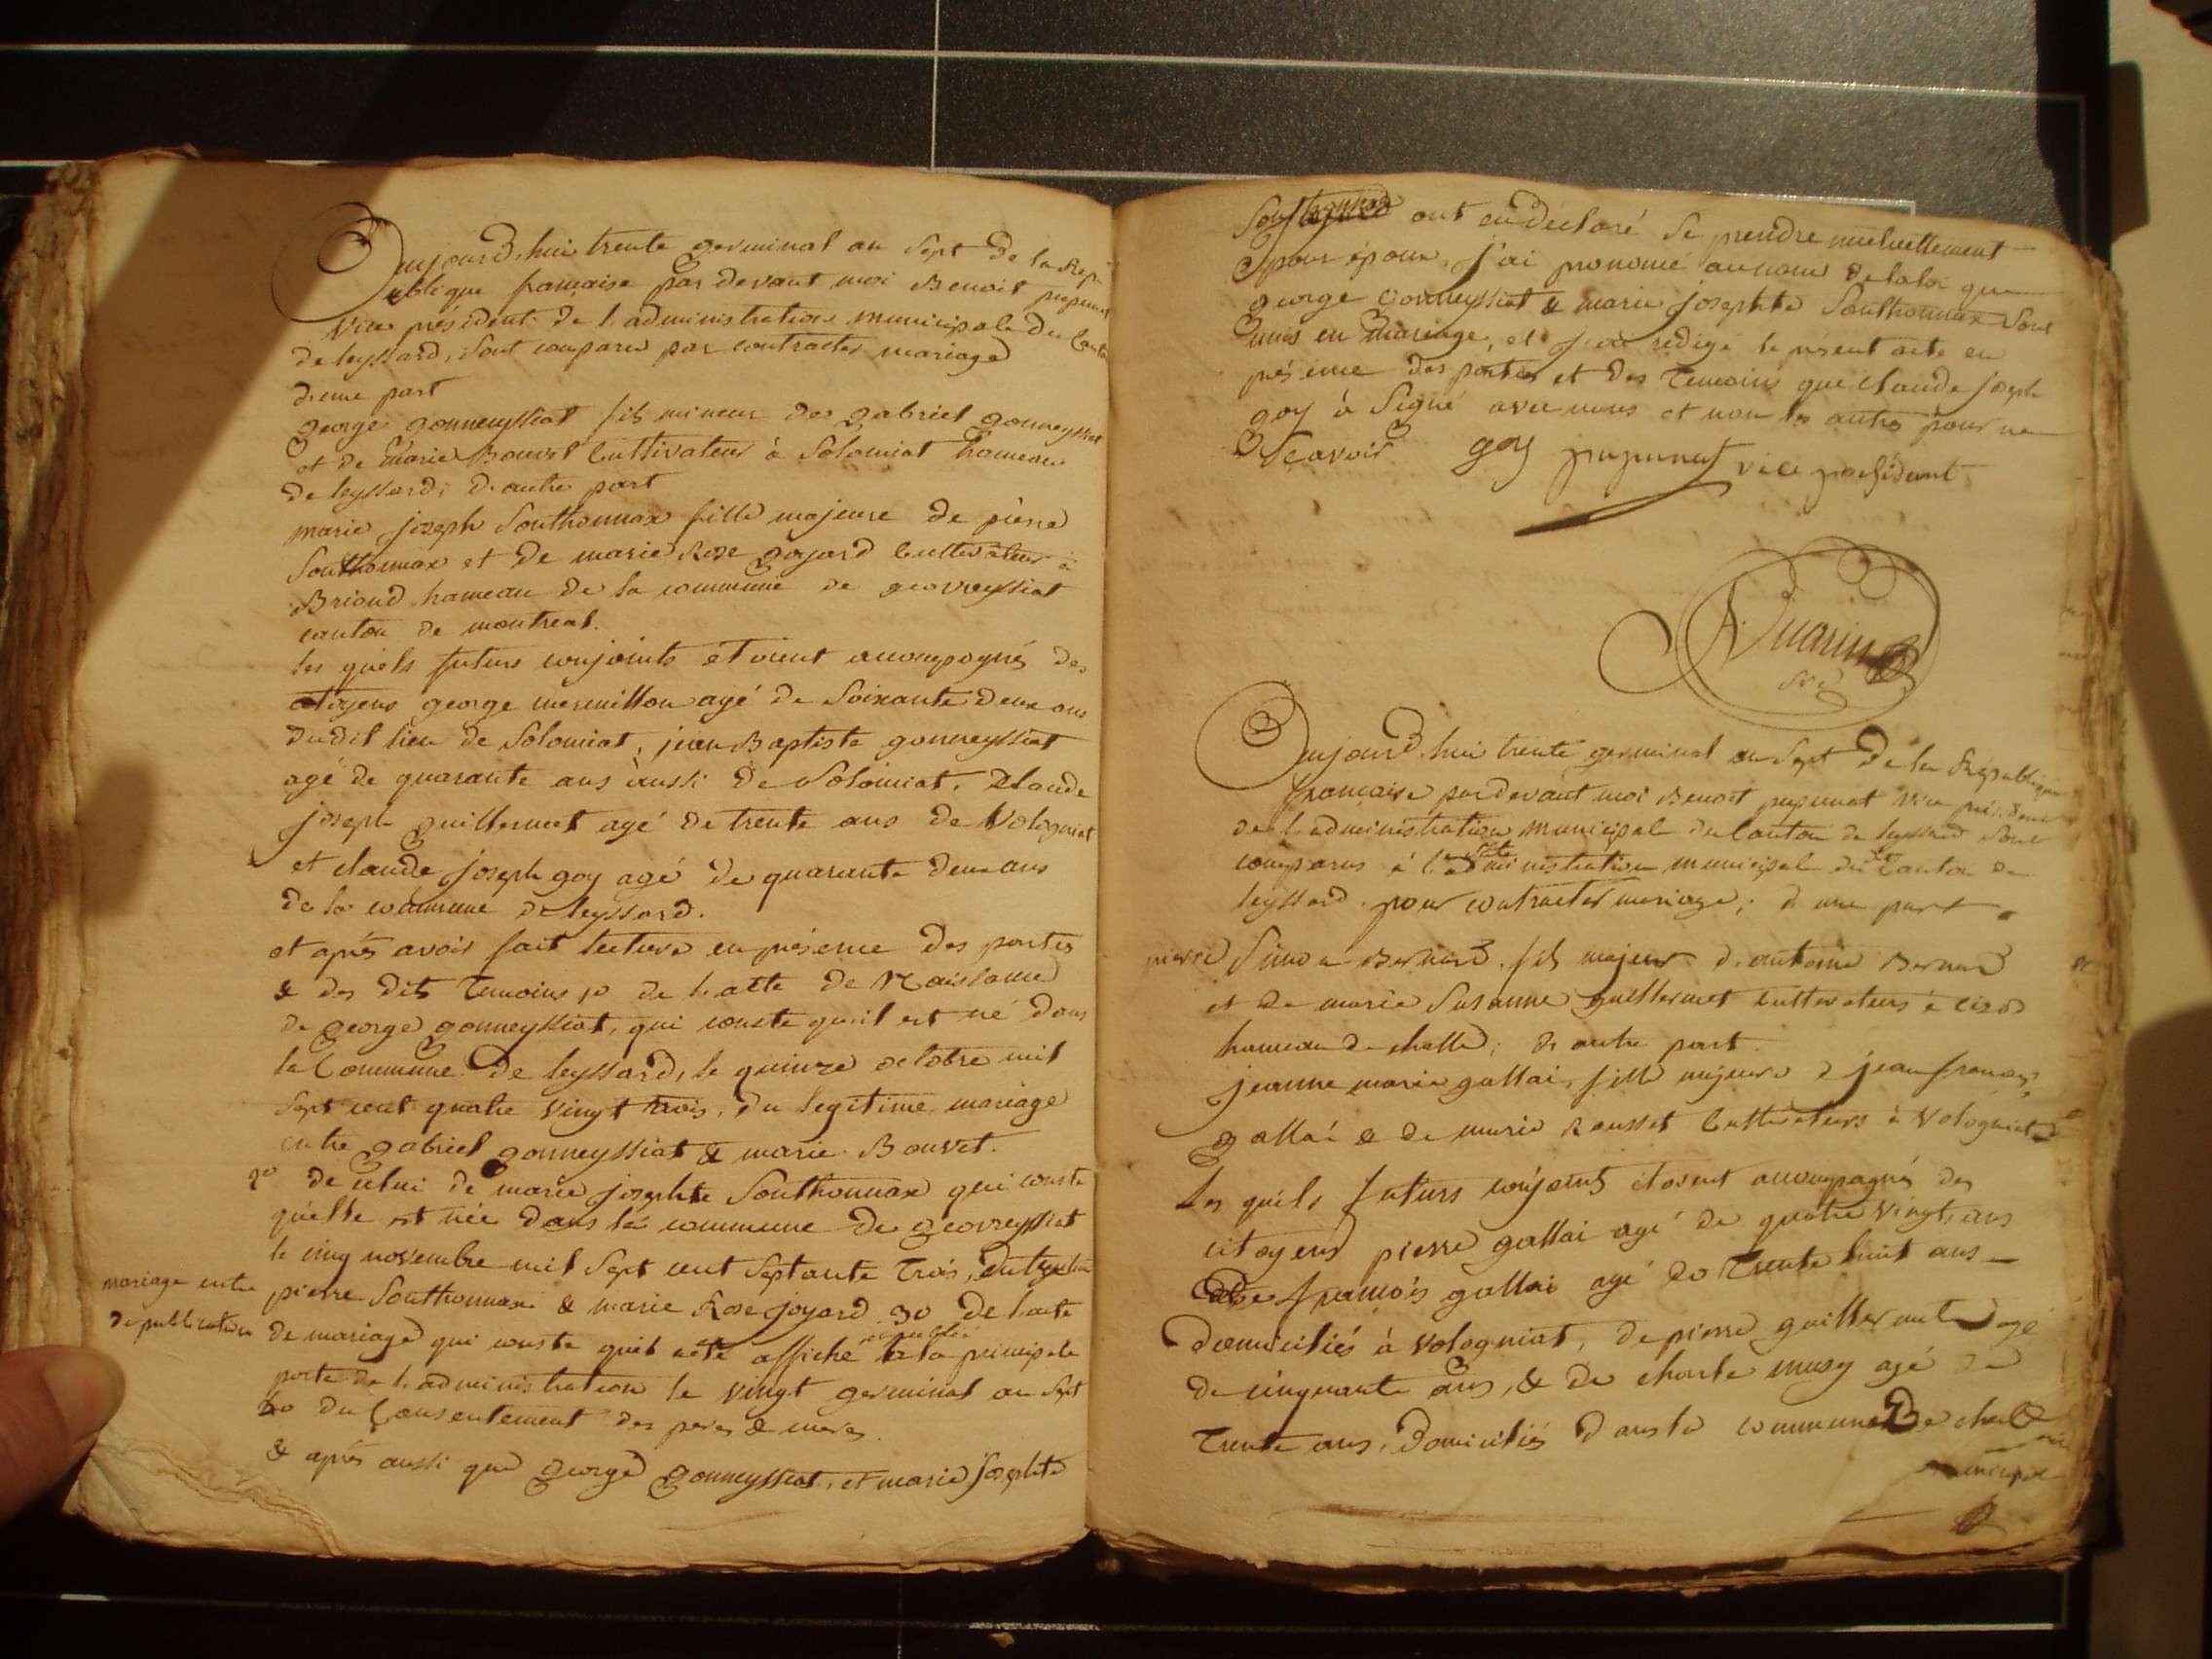 Aujourd'hui trente germinal an Sept de la Rep-
ublique française par devant moi Benoit pugunet
Vice président de l'administration municipale du Canton
de leyssard, sont comparu par contracter mariage
d'eune part
george gonneyssiat fils mineur des gabriel gonneyssiat
et de marie Bouvet Cultivateur à Solomiat hameau
de leyssard; d'autre part
marie joseph Southonnax fille majeure de pierre
Southonnax et de marie Rose goyard Cultivateur à
Briond hameau de la commune de geovreyssiat
canton de montreal.
les quels futurs conjoints étoient accompagnés des
citoyens george mermillon agé de Soixante deux ans
dudit lieu de Solomiat, jean Baptiste gonneyssiat
agé de quarante ans aussi de Solomiat, Claude
joseph guillermet agé de trente ans de Volognat
et claude joseph goy agé de quarante deux ans
de la commune de leyssard.
et après avoir fait lecture en présence des parties
& des dits temoins 1o de l'acte de Naissance
de george gonneyssiat, qui conste qu'il est né dans
la Commune de leyssard, le quinze octobre mil
Sept cent quatre vingt trois, du legitime mariage
entre gabriel gonneyssiat & marie Bouvet.
2o de celui de marie josephte Southonnax qui conste
qu'elle est née dans la commune de geovreyssiat
le cinq novembre mil Sept cent Septante trois, entre
pierre Southonnax & marie Rose joyard 3o de l'acte
mariage entre
de publication
de mariage qui conste quil a été affiché a la principale
porte de l'administration le vingt germinal an Sept
4o du Consentement des peres & meres.
& après aussi que george gonneyssiat, et marie josephte
Southonnax ont eu declaré se prendre mutuellement
pour époux, j'ai prononcé au nom de la loi que
george Gonneyssiat & marie josephte Southonnax Sont
unis en mariage, et j'ai redigé le présent acte en
présence des parties et des temoins que claude joseph
goy à Signé avec nous et non les autres pour ne
Scavoir goy pugunet vice president
Aujourd'hui trente germinal an Sept de la République
française par devant moi Benoit pugunet Vice président
de l'administration municipale du Canton de leyssard Sont
comparus à l'administration municipale du Canton de
leyssard pour contracter mariage; d'une part
pierre Simon Bernard fils majeur d'antoine Bernard
et de marie Susanne guillermet cultivateurs à cizod
hameau de challe; d'autre part
jeanne marie gallai, fille majeure d jean françois
gallai & de marie Rousset Cultivateurs à Volognat
Les quels futurs conjoints étoient accompagnés des
citoyens pierre gallai agé de quatre vingt ans
de françois gallai agé de trente huit ans
domiciliés à Volognat, de pierre guillermet agé
de cinquante ans, & de charle musy agé de
trente ans, Domiciliés dans la commune de challe